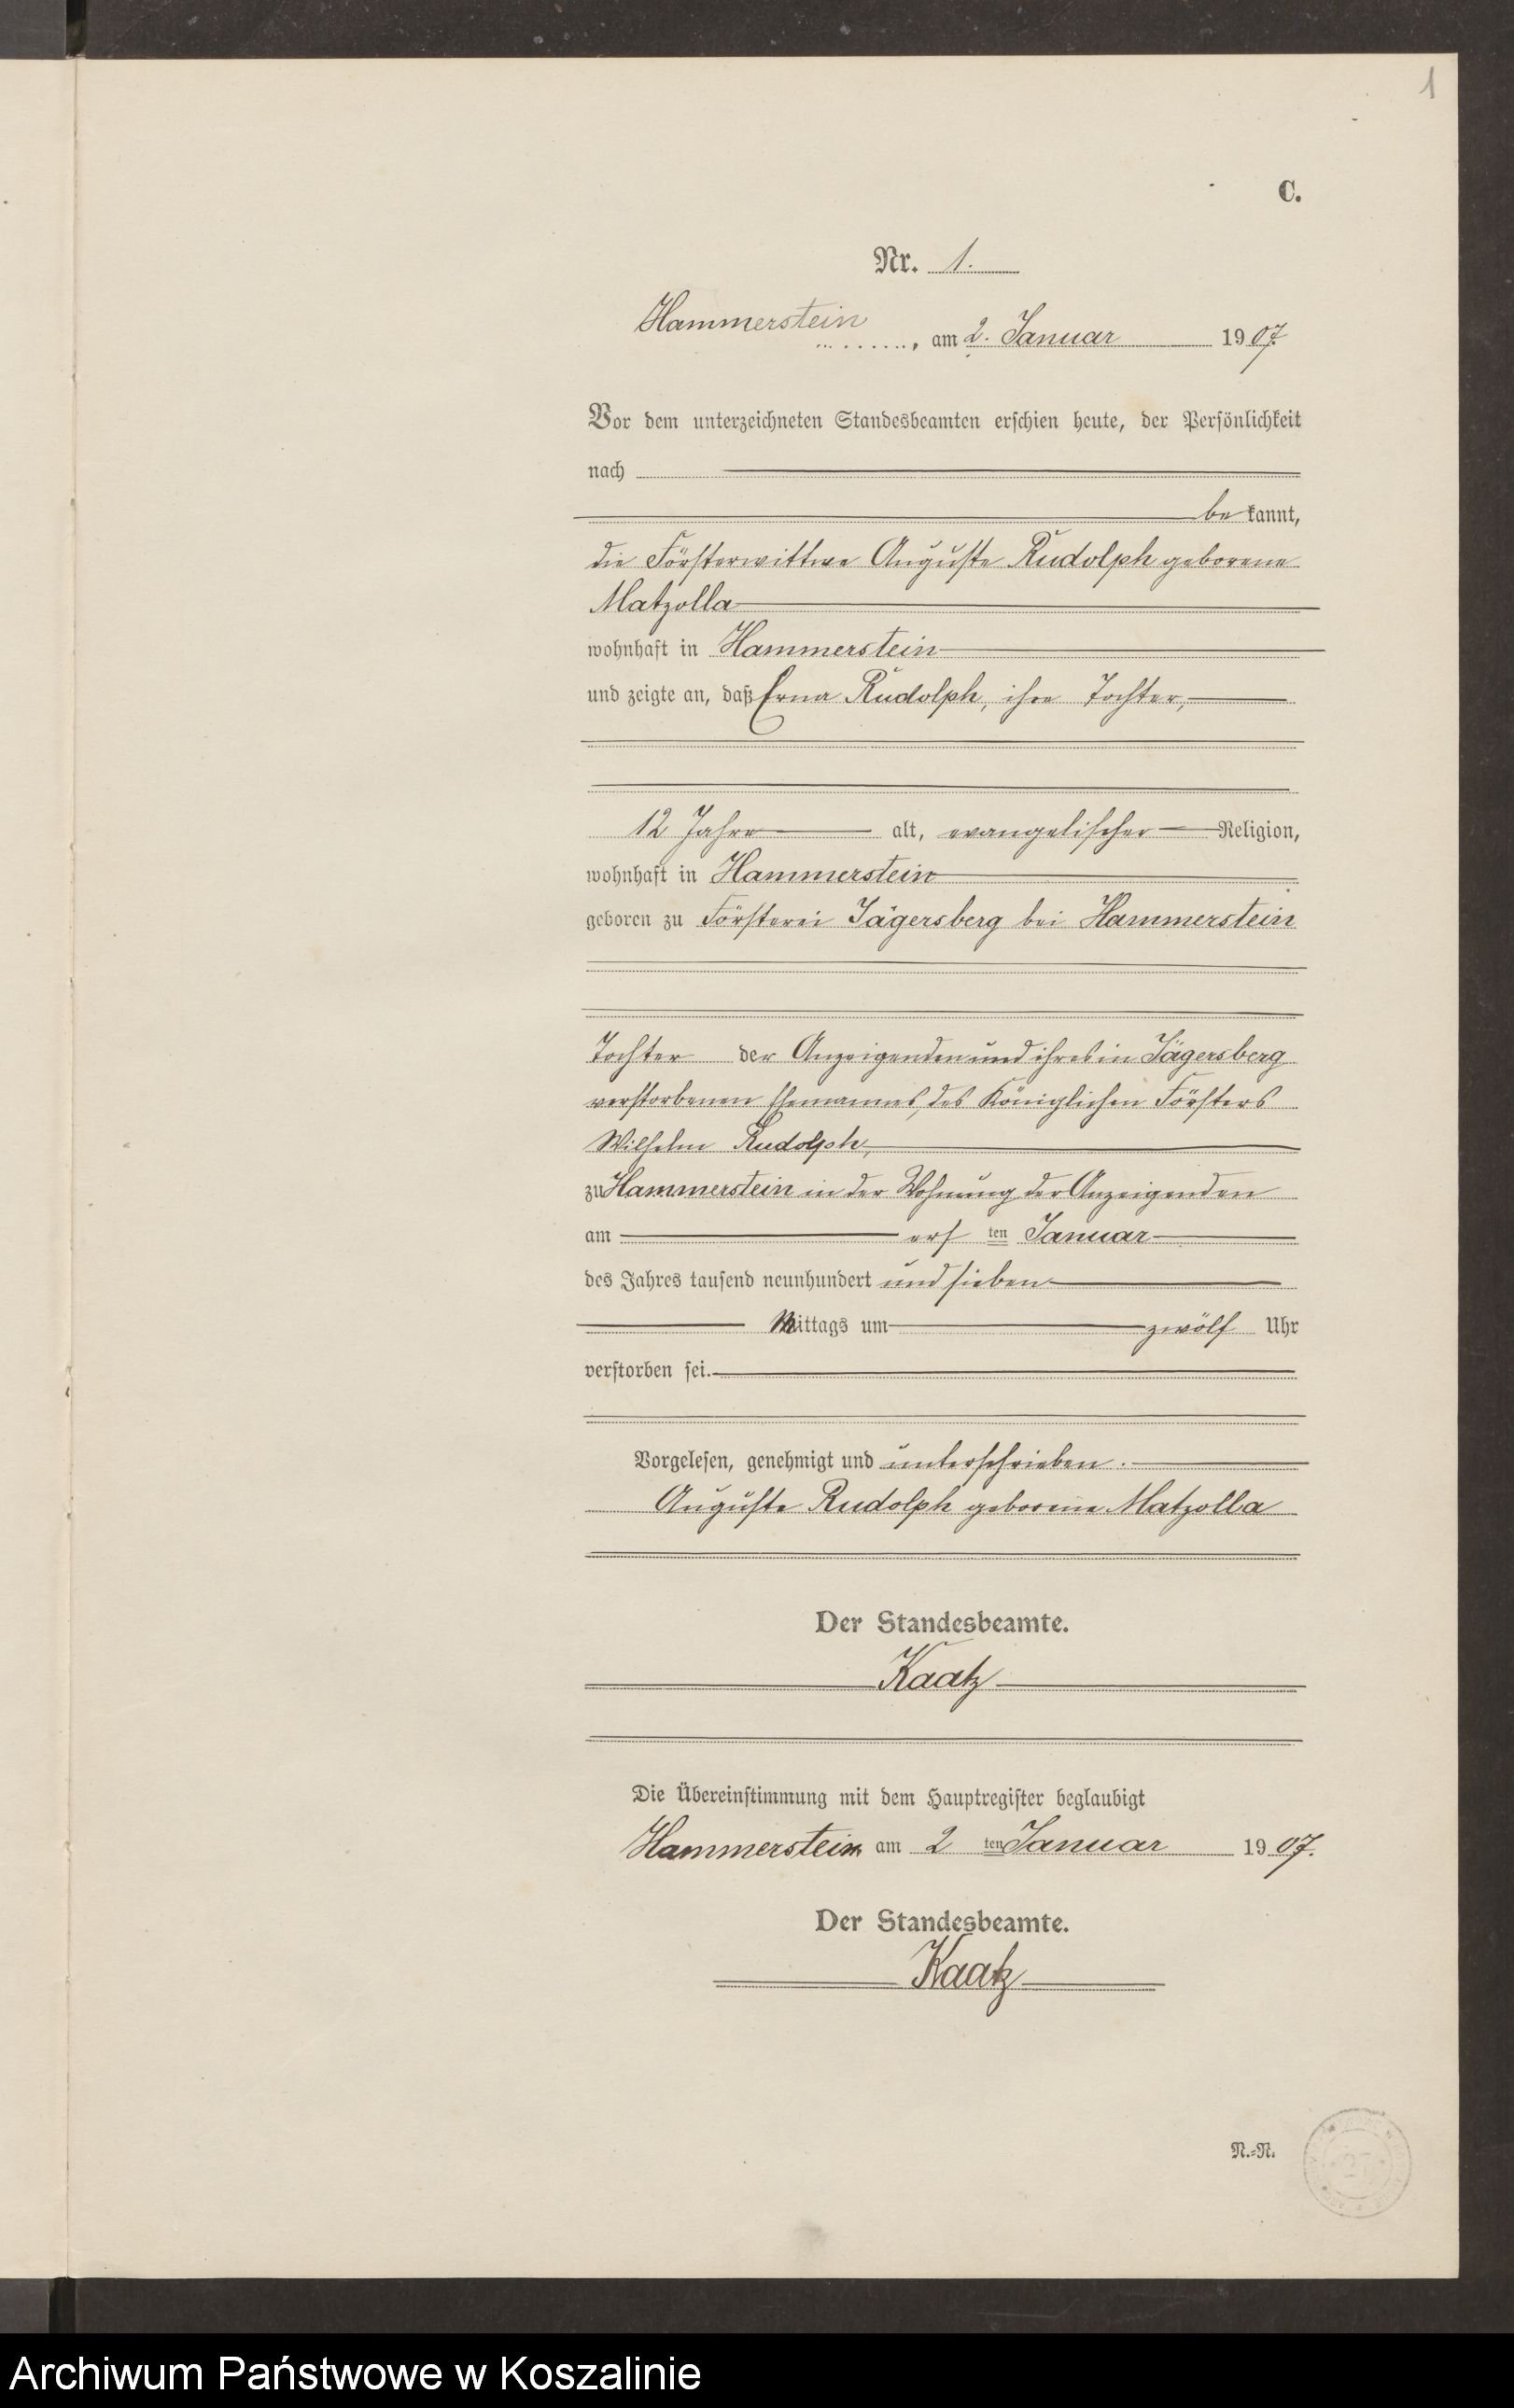 1
C.
Nr. 1.
Hammerstein, am 2. Januar 1907.
Vor dem unterzeichneten Standesbeamten erschien heute, der Persönlichkeit
nach
be kannt,
die Försterwittwe Auguste Rudolph geborene
Matzolla
wohnhaft in Hammerstein
und zeigte an, daß Erna Rudolph, ihre Tochter,
12 Jahre alt, evangelischer Religion,
wohnhaft in Hammerstein
geboren zu Försterei Jägersberg bei Hammerstein
Tochter der Anzeigenden und ihres in Jägersberg
verstorbenen Ehemannes, des Königlichen Försters
Wilhelm Rudolph,
zu Hammerstein in der Wohnung der Anzeigenden
am ersten Januar
des Jahres tausend neunhundert und sieben
Mittags um zwölf Uhr
verstorben sei.
Vorgelesen, genehmigt und unterschrieben.
Auguste Rudolph geborene Matzolla
Der Standesbeamte.
Kaatz
Die Übereinstimmung mit dem Hauptregister beglaubigt
Hammerstein am 2ten Januar 1907.
Der Standesbeamte.
Kaatz
N.=N.
Archiwum Państwowe w Koszalinie